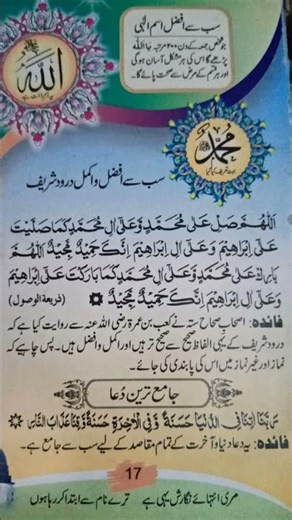 سب سے افضل اسم الٰہی
جو شخص جمعہ کے دن ۲۰۰ مرتبہ یَا اَللّٰہ
پڑھے گا اس کی ہر مشکل آسان ہوگی
اور ہر قسم کے مرض سے صحت پائے گا۔
اللہ
محمد
سب سے افضل و اکمل درود شریف
اَللّٰهُمَّ صَلِّ عَلٰى مُحَمَّدٍ وَّعَلٰى اٰلِ مُحَمَّدٍ كَمَا صَلَّيْتَ
عَلٰى اِبْرَاهِيْمَ وَعَلٰى اٰلِ اِبْرَاهِيْمَ اِنَّكَ حَمِيْدٌ مَّجِيْدٌ اَللّٰهُمَّ
بَارِكْ عَلٰى مُحَمَّدٍ وَّعَلٰى اٰلِ مُحَمَّدٍ كَمَا بَارَكْتَ عَلٰى اِبْرَاهِيْمَ
وَعَلٰى اٰلِ اِبْرَاهِيْمَ اِنَّكَ حَمِيْدٌ مَّجِيْدٌ (ذریعۃ الوصول)
فائدہ: اصحاب صحاح ستہ نے کعب بن عمرہ رضی اللہ عنہ سے روایت کیا ہے کہ
درود شریف کے یہی الفاظ صحیح سے صحیح تر ہیں اور اکمل و افضل ہیں۔ پس چاہیے کہ
نماز اور غیر نماز میں اس کی پابندی کی جائے۔
جامع ترین دُعا
رَبَّنَا اٰتِنَا فِى الدُّنْيَا حَسَنَةً وَّفِى الْاٰخِرَةِ حَسَنَةً وَّقِنَا عَذَابَ النَّارِ
فائدہ: یہ دعا دنیا و آخرت کے تمام مقاصد کے لیے سب سے جامع ہے۔
17
مری انتہائے نگارش یہی ہے ترے نام سے ابتدا کر رہا ہوں